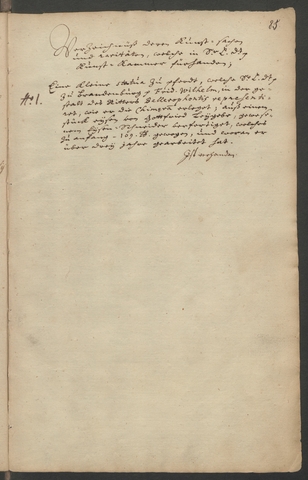 85
Verzeichniß derer Kunst-sachen
und raritäten, welche in Sr. C. D.
Kunst-Kammer fürhanden,
No 1. Eine Kleine statua zu pferde, welche Sr. C. D.
zu Brandenburg Frid. Wilhelm, in der ge-
stalt des Ritters Bellerophontis repraesenti-
ret, wie er die Chimæra erleget, aus einem
stück eysen von Gottfried Leygebe, gewese-
nen Eysen-Schneider verfertiget, welches
zu anfang 109. ℔. gewogen, und woran er
über drey Jahre gearbeitet hat.
Ist vorhanden.